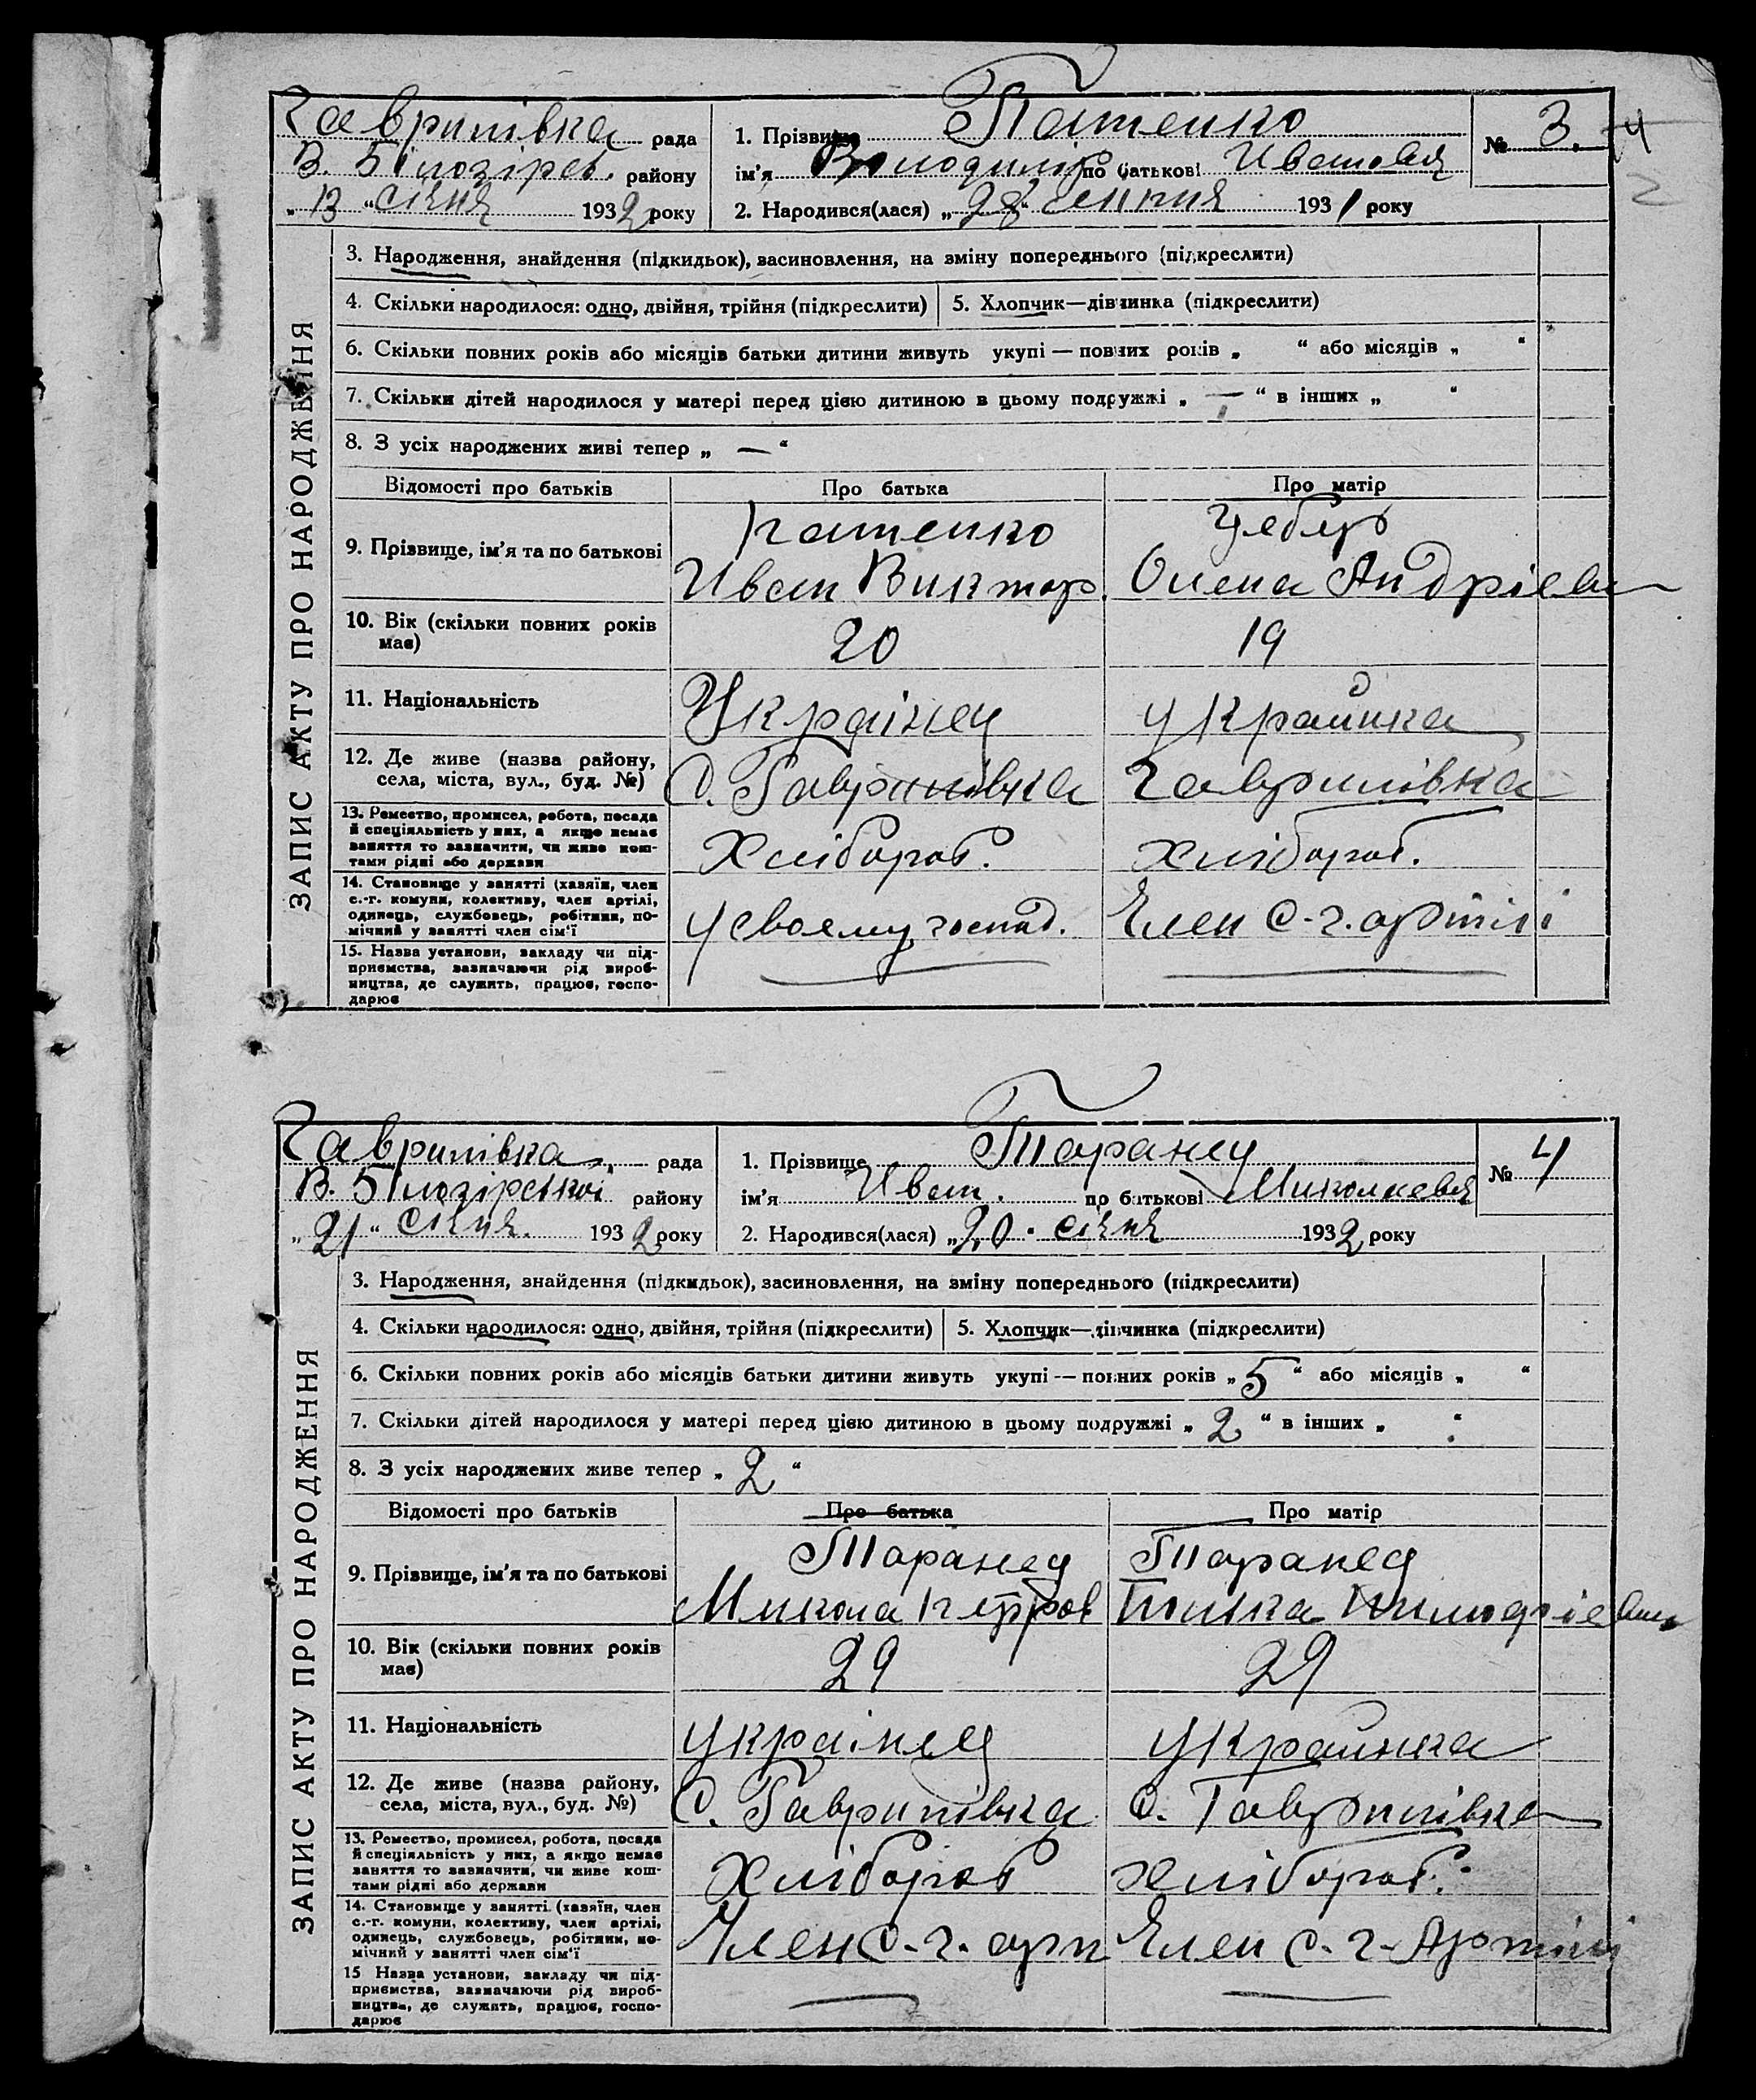 Гаврилівка рада
В. Білозірсь. району
„13 “ січня 1932 року
1. Прізвище Патенко
ім'я Володимір по батькові Иванович
2. Народився(лася) „28“ серпня 1931 року
№ 3.
4
2
ЗАПИС АКТУ ПРО НАРОДЖЕННЯ
3. Народження, знайдення (підкидьок), васиновлення, на зміну попереднього (підкреслити)
4. Скільки народилося: одно, двійня, трійня (підкреслити)
5. Хлопчик—дівчинка (підкреслити)
6. Скільки повних років або місяців батьки дитини живуть укупі — повних років „ “ або місяців „ “
7. Скільки дітей народилося у матері перед цією дитиною в цьому подружжі „ — “ в інших „ “
8. З усіх народжених живі тепер „ — “
Відомості про батьків Про батька Про матір
9. Прізвище, ім'я та по батькові
Патенко
Иван Виктор.
Олена Андріевн
10. Вік (скільки повних років має)
20
19
11. Національність
Українец
Українка
12. Де живе (назва району,
села, міста, вул., буд. №)
С. Гаврилівка
Гаврилівка
13. Ремество, промисел, робота, посада
й спеціяльність у них, а якщо немає
заняття то зазначити, чи живе кош-
тами рідні або держави
Хлібороб.
Хлібороб.
14. Становище у занятті (хазяїн, член
с.-г. комуни, колективу, член артілі,
одинець, службовець, робітник, по-
мічний у занятті член сім'ї
У своему госпад.
Член с-г. артілі
15. Назва установи, закладу чи під-
приємства, зазначаючи рід вироб-
ництва, де служить, працює, госпо-
дарює
Гаврилівка. рада
В. Білозірської району
„21“ січня. 1932 року
1. Прізвище Таранец
ім'я Иван. по батькові Миколаевич
2. Народився(лася) „20“ січня 1932 року
№ 4
ЗАПИС АКТУ ПРО НАРОДЖЕННЯ
3. Народження, знайдення (підкидьок), засиновлення, на зміну попереднього (підкреслити)
4. Скільки народилося: одно, двійня, трійня (підкреслити)
5. Хлопчик—дівчинка (підкреслити)
6. Скільки повних років або місяців батьки дитини живуть укупі — повних років „5“ або місяців „ “
7. Скільки дітей народилося у матері перед цією дитиною в цьому подружжі „2“ в інших „ “
8. З усіх народжених живе тепер „2“
Відомості про батьків Про батька Про матір
9. Прізвище, ім'я та по батькові
Таранец
Микола Петров
Таранец
10. Вік (скільки повних років має)
29
29
11. Національність
українец
українка
12. Де живе (назва району,
села, міста, вул., буд. №)
С. Гаврилівка
С. Гаврилівка
13. Ремество, промисел, робота, посада
й спеціяльність у них, а якщо немає
заняття то зазначити, чи живе кош-
тами рідні або держави
Хлібороб
хлібороб.
14. Становище у занятті (хазяїн, член
с.-г. комуни, колективу, член артілі,
одинець, службовець, робітник, по-
мічний у занятті член сім'ї
Член С.-г. арт
Член С.-г. Артілі
15 Назва установи, закладу чи під-
приємства, зазначаючи рід вироб-
ництва, де служить, працює, госпо-
дарює